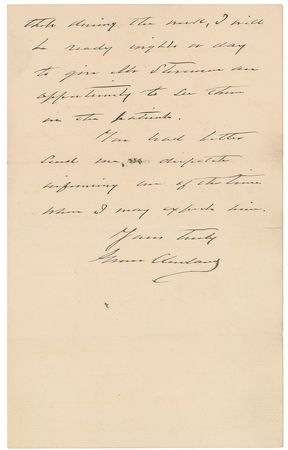 during the week, I will
be ready night or day
to give Mr Stevenson an
opportunity to see them
on the
You had better
send me a dispatch
informing me of the time
when I may expect him.
Yours truly
Grover Cleveland